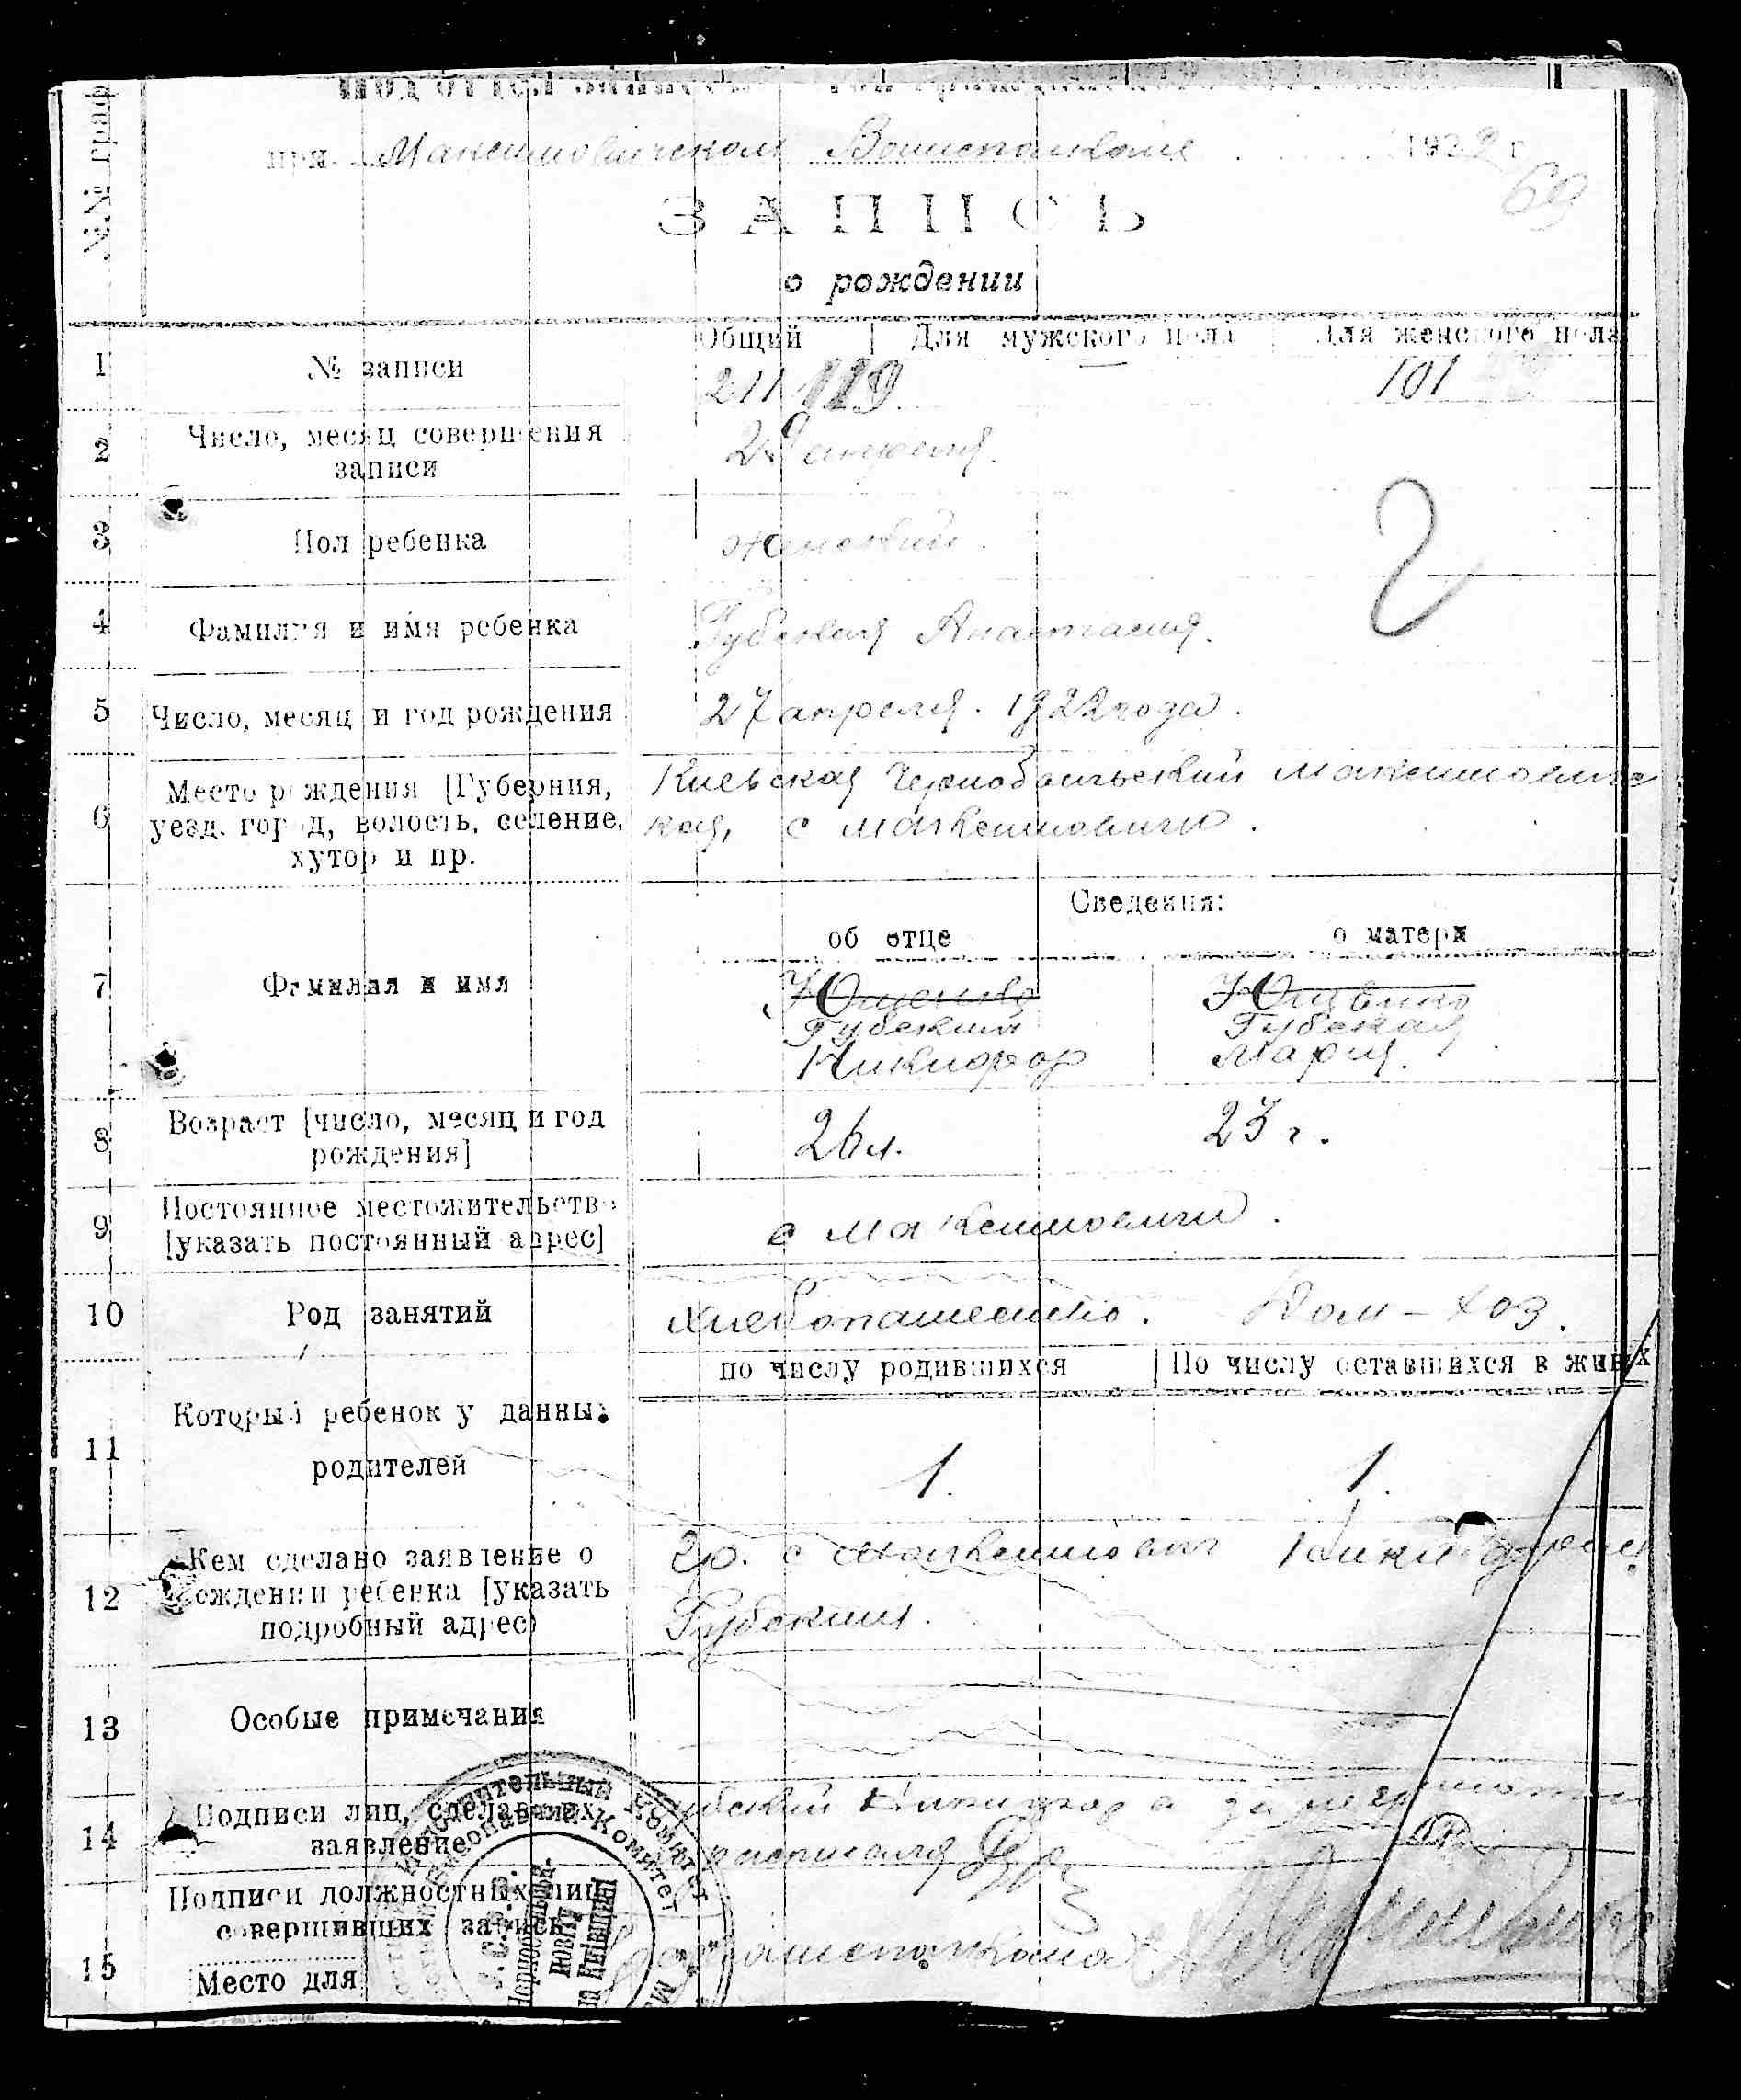 №№ граф
при Максимовичском Волисполкоме 1922 г
69
ЗАПИСЬ
о рождении
Общий Для мужского пола Для женского пола
1 № записи 211 119 — 101
2 Число, месяц совершения
записи
28 апреля.
3 Пол ребенка женский.
4 Фамилия и имя ребенка Губская Анастасия.
5 Число, месяц и год рождения 27 апреля. 1922 года.
6 Место рождения [Губерния,
уезд, город, волость, селение,
хутор и пр.
Киевская Чернобыльский Максимовичс
кая, с Максимовичи.
Сведения:
об отце о матери
7 Фамилия и имя
Ющенко Ющенко
Губский Губская
Никифор Мария.
8 Возраст [число, месяц и год
рождения]
26 л. 23 г.
9 Постоянное местожительство
[указать постоянный адрес]
с Максимовичи.
10 Род занятий хлебопашество. Дом-хоз.
по числу родившихся По числу оставшихся в живых
11 Который ребенок у данных
родителей
1. 1.
12 Кем сделано заявление о
рождении ребенка [указать
подробный адрес)
Гр. с Максимович Никифором
Губским.
13 Особые примечания
14 Подписи лиц, сделавших
заявление
Губский Никифор а за неграмотн
расписался
Подписи должностных лиц
совершивших запись
15 Место для